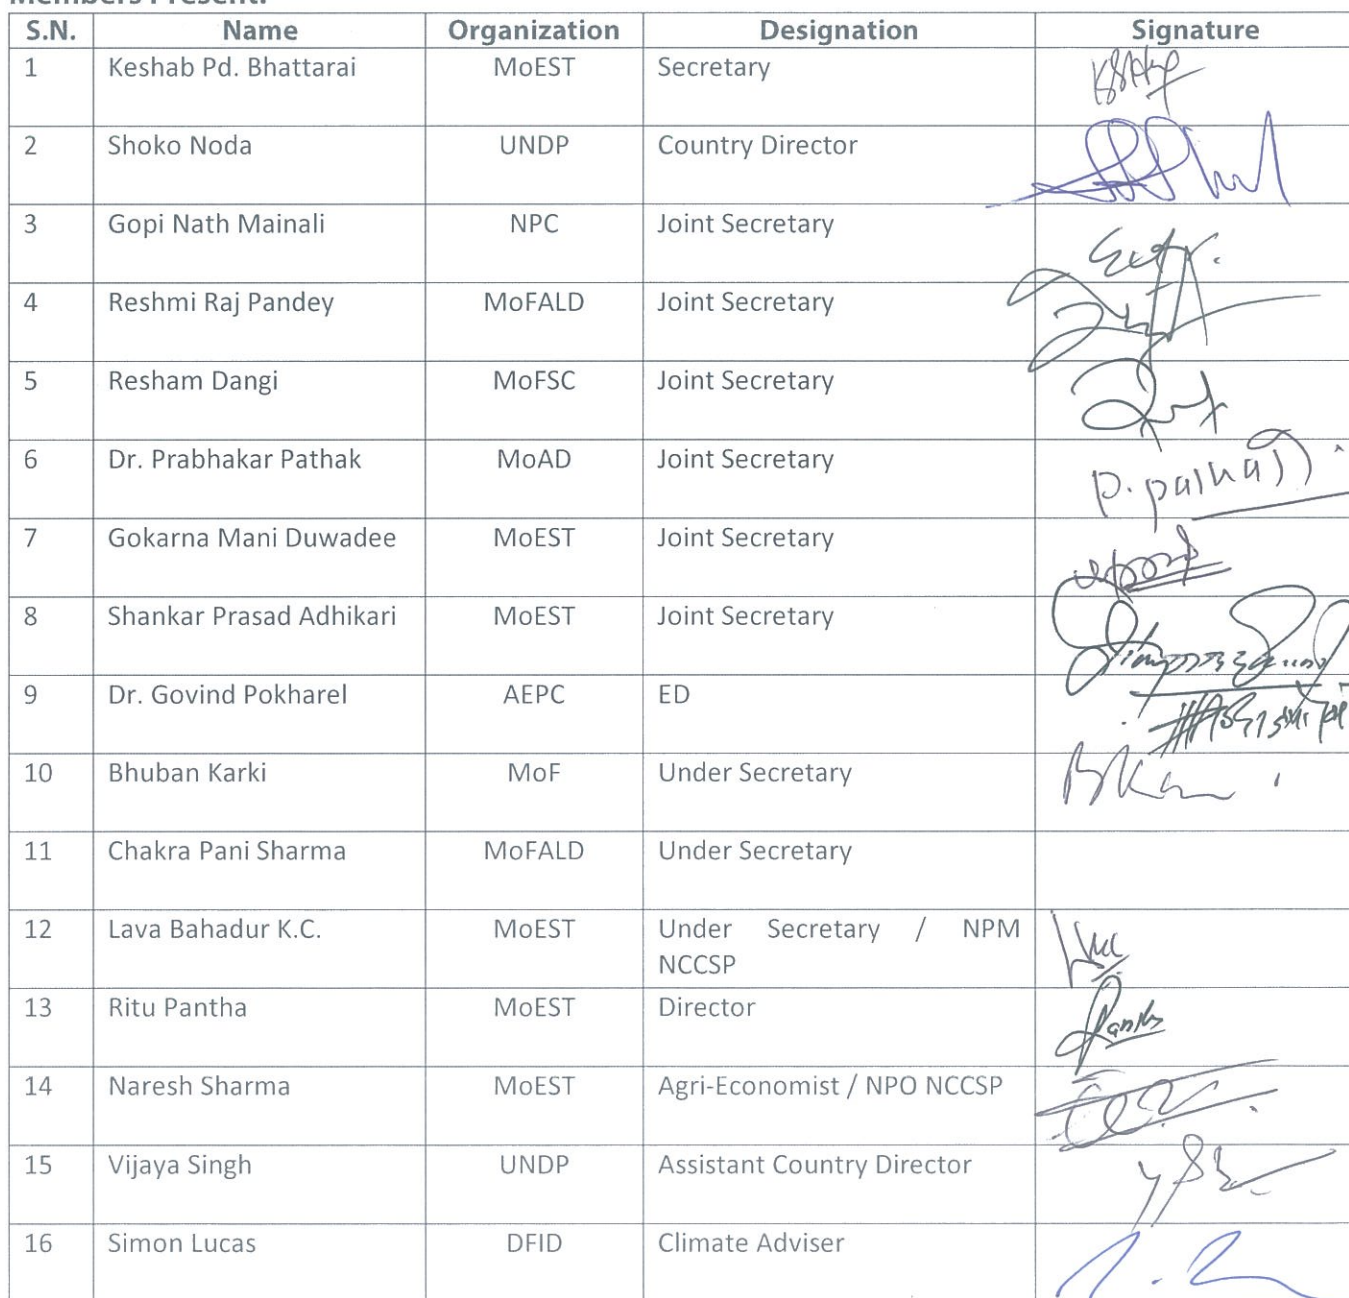 Members Present:
S.N. Name Organization Designation Signature
1 Keshab Pd. Bhattarai MoEST Secretary
2 Shoko Noda UNDP Country Director
3 Gopi Nath Mainali NPC Joint Secretary
4 Reshmi Raj Pandey MoFALD Joint Secretary
5 Resham Dangi MoFSC Joint Secretary
6 Dr. Prabhakar Pathak MoAD Joint Secretary P. Pathak
7 Gokarna Mani Duwadee MoEST Joint Secretary
8 Shankar Prasad Adhikari MoEST Joint Secretary
9 Dr. Govind Pokharel AEPC ED
10 Bhuban Karki MoF Under Secretary
11 Chakra Pani Sharma MoFALD Under Secretary
12 Lava Bahadur K.C. MoEST Under Secretary / NPM
NCCSP
13 Ritu Pantha MoEST Director
14 Naresh Sharma MoEST Agri-Economist / NPO NCCSP
15 Vijaya Singh UNDP Assistant Country Director
16 Simon Lucas DFID Climate Adviser